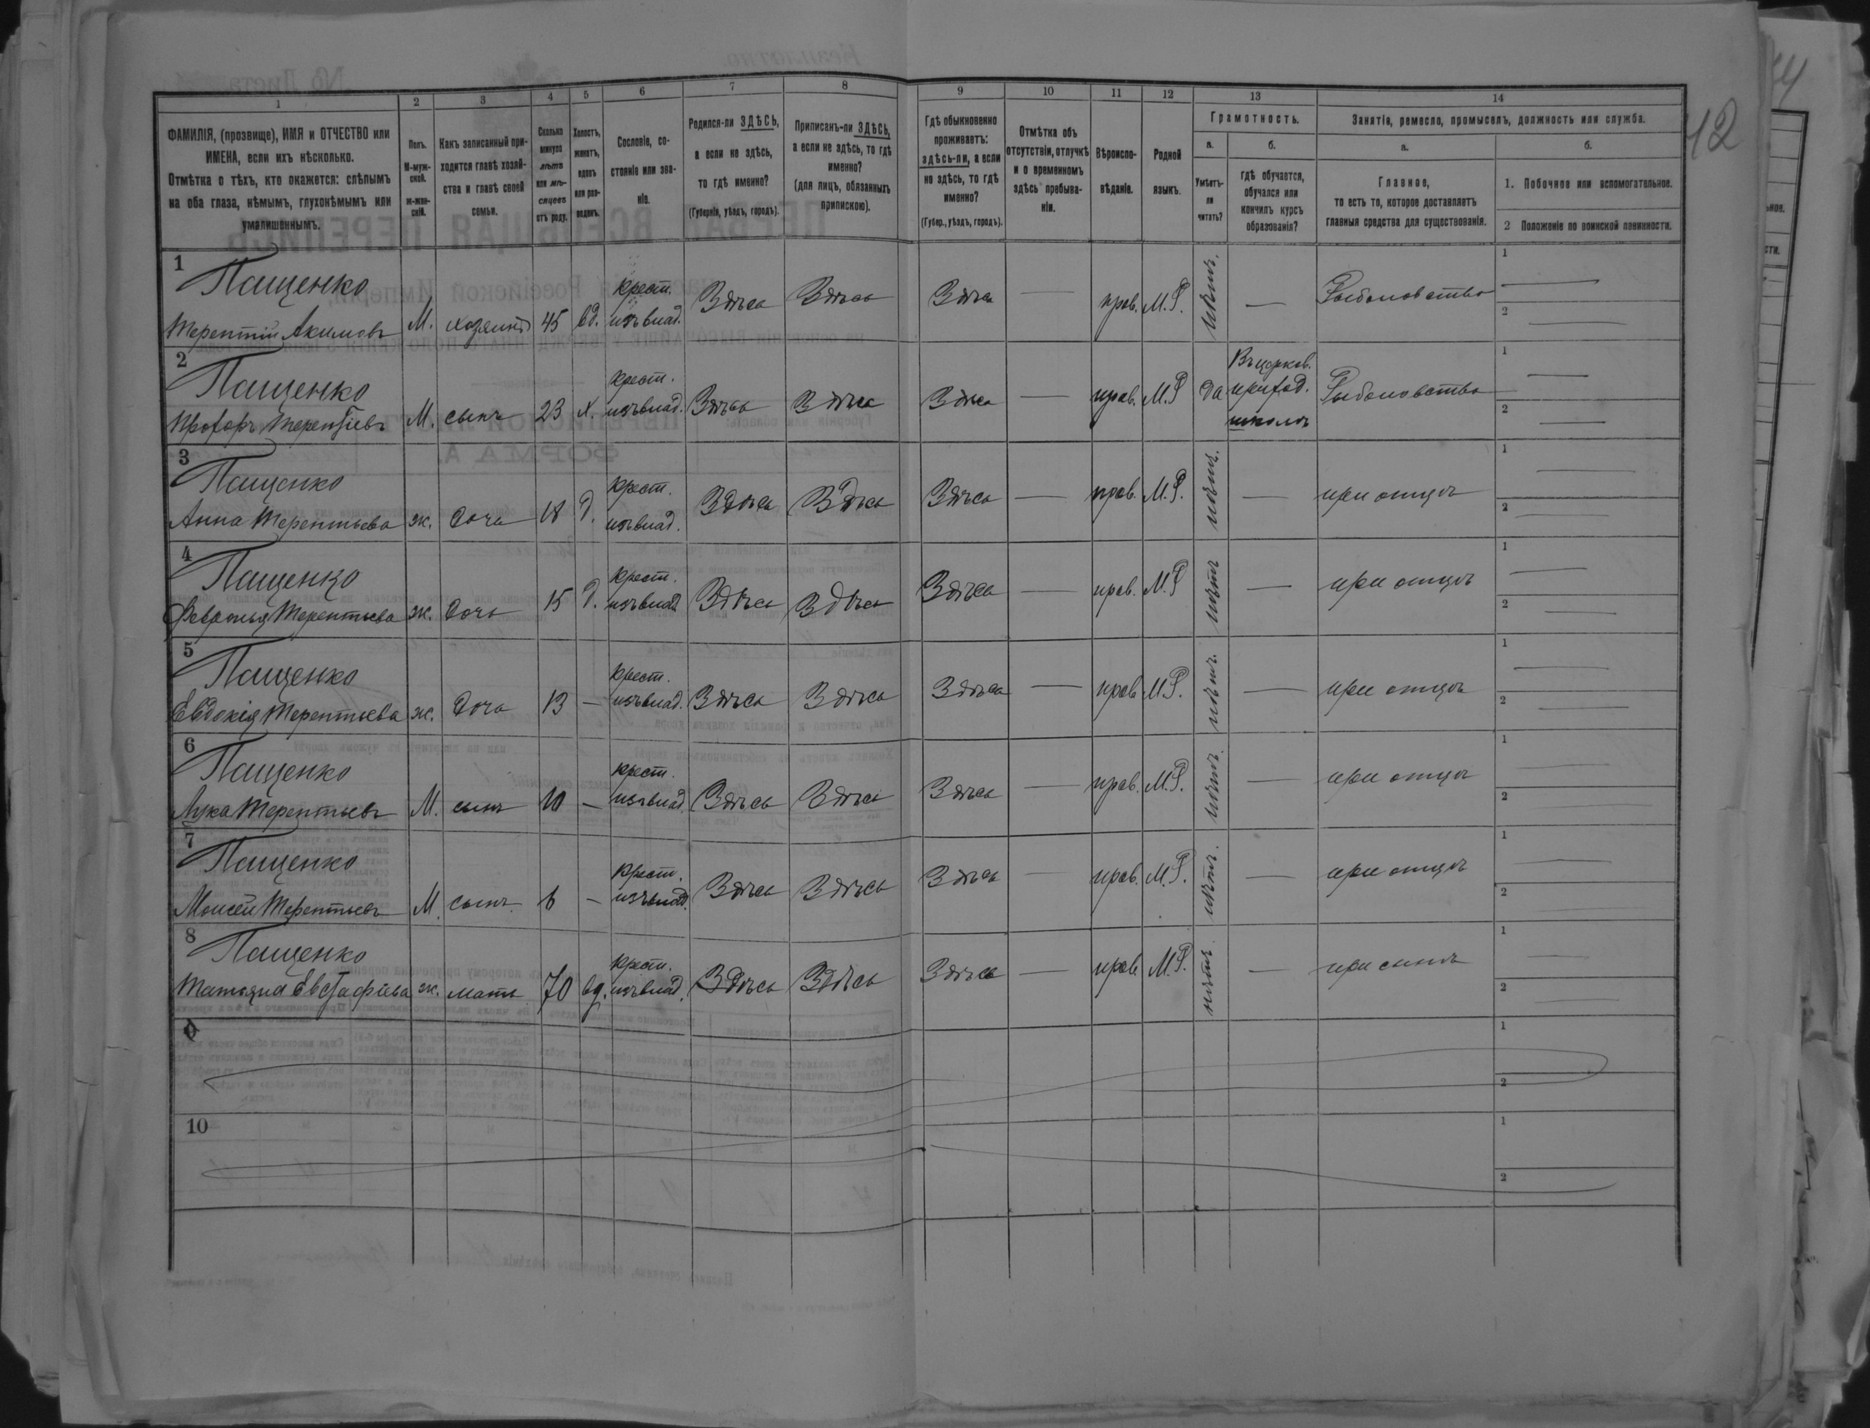 12
1 2 3 4 5 6 7 8 9 10 11 12 13 14
ФАМИЛІЯ, (прозвище), ИМЯ и ОТЧЕСТВО или
ИМЕНА, если ихъ нѣсколько.
Отмѣтка о тѣхъ, кто окажется: слѣпымъ
на оба глаза, нѣмымъ, глухонѣмымъ или
умалишеннымъ.
Полъ.
М-муж-
ской.
ж-жен-
скій.
Какъ записанный при-
ходится главѣ хозяй-
ства и главѣ своей
семьи.
Сколько
минуло
лѣтъ
или мѣ-
сяцевъ
отъ роду.
Холостъ,
женатъ,
вдовъ
или раз-
веденъ.
Сословіе, со-
стояніе или зва-
ніе.
Родился-ли ЗДѢСЬ,
а если не здѣсь,
то гдѣ именно?
(Губернія, уѣздъ, городъ).
Приписанъ-ли ЗДѢСЬ,
а если не здѣсь, то гдѣ
именно?
(для лицъ, обязанныхъ
припискою).
Гдѣ обыкновенно
проживаетъ:
здѣсь-ли, а если
не здѣсь, то гдѣ
именно?
(Губер., уѣздъ, городъ).
Отмѣтка объ
отсутствіи, отлучкѣ
и о временномъ
здѣсь пребыва-
ніи.
Вѣроиспо-
вѣданіе.
Родной
языкъ.
Грамотность.
а.
Умѣетъ-
ли
читать?
б.
гдѣ обучается,
обучался или
кончилъ курсъ
образованія?
Занятія, ремесло, промыселъ, должность или служба.
а.
Главное,
то есть то, которое доставляетъ
главныя средства для существованія.
б.
1. Побочное или вспомогательное.
2 Положеніе по воинской повинности.
1
Пащенко
Терентій Акимовъ М. хозяинъ 45 вд. Крест. изъ влад. Здѣсь Здѣсь Здѣсь — прав. М.Р. нѣтъ — Рыболовство 1 — 2 —
2
Пащенко
Прохоръ Терентіевъ М. сынъ 23 х. Крест. изъ влад. Здѣсь Здѣсь Здѣсь — прав. М.Р. да Въ церков. приход. школѣ Рыболовство 1 — 2 —
3
Пащенко
Анна Терентьева ж. дочь 18 д. Крест. изъ влад. Здѣсь Здѣсь Здѣсь — прав. М.Р. нѣтъ — при отцѣ 1 — 2 —
4
Пащенко
Февронья Терентьева ж. дочь 15 д. Крест. изъ влад. Здѣсь Здѣсь Здѣсь — прав. М.Р. нѣтъ — при отцѣ 1 — 2 —
5
Пащенко
Евдокія Терентьева ж. дочь 13 — Крест. изъ влад. Здѣсь Здѣсь Здѣсь — прав. М.Р. нѣтъ — при отцѣ 1 — 2 —
6
Пащенко
Лука Терентьевъ М. сынъ 10 — Крест. изъ влад. Здѣсь Здѣсь Здѣсь — прав. М.Р. нѣтъ — при отцѣ 1 — 2 —
7
Пащенко
Моисей Терентьевъ М. сынъ 6 — Крест. изъ влад. Здѣсь Здѣсь Здѣсь — прав. М.Р. нѣтъ — при отцѣ 1 — 2 —
8
Пащенко
Татьяна Евстафіева ж. мать 70 вд. Крест. изъ влад. Здѣсь Здѣсь Здѣсь — прав. М.Р. нѣтъ — при сынѣ 1 — 2 —
1
2
10
1
2